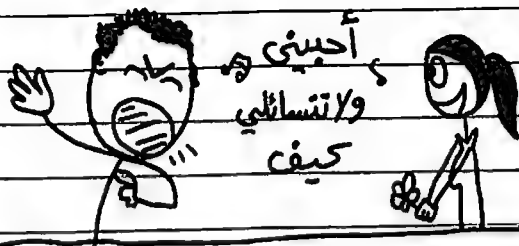 أحبيني
ولا تتسائلي
كيف